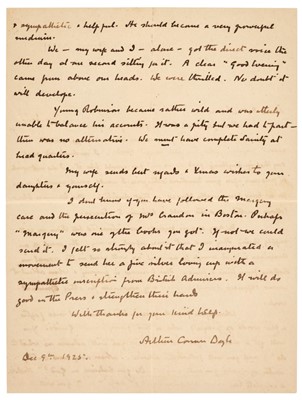 & sympathetic & helpful. He should become a very powerful
medium.
We – my wife and I – alone – got the direct voice the
other day at our second sitting for it. A clear "Good evening"
came from above our heads. We were thrilled. No doubt it
will develope.
Young Robinson became rather wild and was utterly
unable to balance his accounts. It was a pity but we had to part –
there was no alternative. We must have complete Sanity at
head quarters.
My wife sends best regards & Xmas wishes to your
daughter & yourself.
I dont know if you have followed the Margery
case and the persecution of Mrs Crandon in Boston. Perhaps
"Margery" was one of the books you got. If not we could
send it. I felt so strongly about it that I inaugurated a
movement to send her a fine silver loving cup with a
sympathetic inscription from British Admirers. It will do
good in the Press & strengthen their hands
With thanks for your kind help.
Arthur Conan Doyle
Dec 9th 1925.